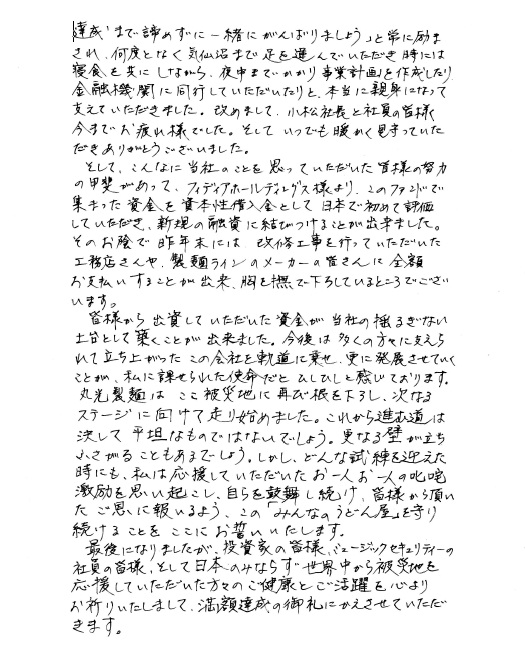 達成まで諦めずに一緒にがんばりましょう」と常に励ま
され、何度となく気仙沼まで足を運んでいただき時には
寝食を共にしながら、夜中までかかり事業計画を作成したり
金融機関に同行していただいたりと、本当に親身になって
支えていただきました。改めまして、小松社長と社員の皆様
今までお疲れ様でした。そしていつでも暖かく見守っていた
だきありがとうございました。
そして、こんなに当社のことを思っていただいた皆様の努力
の甲斐があって、フィディアホールディングス様より、このファンドで
集まった資金を資本性借入金として日本で初めて評価
していただき、新規の融資に結びつけることが出来ました。
そのお陰で昨年末には、改修工事を行っていただいた
工務店さんや、製麺ラインのメーカーの皆さんに全額
お支払いすることが出来、胸を撫で下ろしているところでござい
います。
皆様から出資していただいた資金が当社の揺るぎない
土台として築くことが出来ました。今後は多くの方々に支えら
れて立ち上がったこの会社を軌道に乗せ、更に発展させていく
ことが、私に課せられた使命だとひしひしと感じております。
丸光製麺はここ被災地に再び根を下ろし、次なる
ステージに向けて走り始めました。これから進む道は
決して平坦なものではないでしょう。更なる壁が立ち
ふさがることもあるでしょう。しかし、どんな試練を迎えた
時にも、私は応援していただいたお一人お一人の叱咤
激励を思い起こし、自らを鼓舞し続け、皆様から頂い
たご恩に報いるよう、この「みんなのうどん屋」を守り
続けることをここにお誓いいたします。
最後になりましたが、投資家の皆様、ミュージックセキュリティーの
社員の皆様、そして日本のみならず世界中から被災地を
応援していただいた方々のご健康とご活躍を心より
お祈りいたしまして、満額達成の御礼にかえさせていただ
きます。